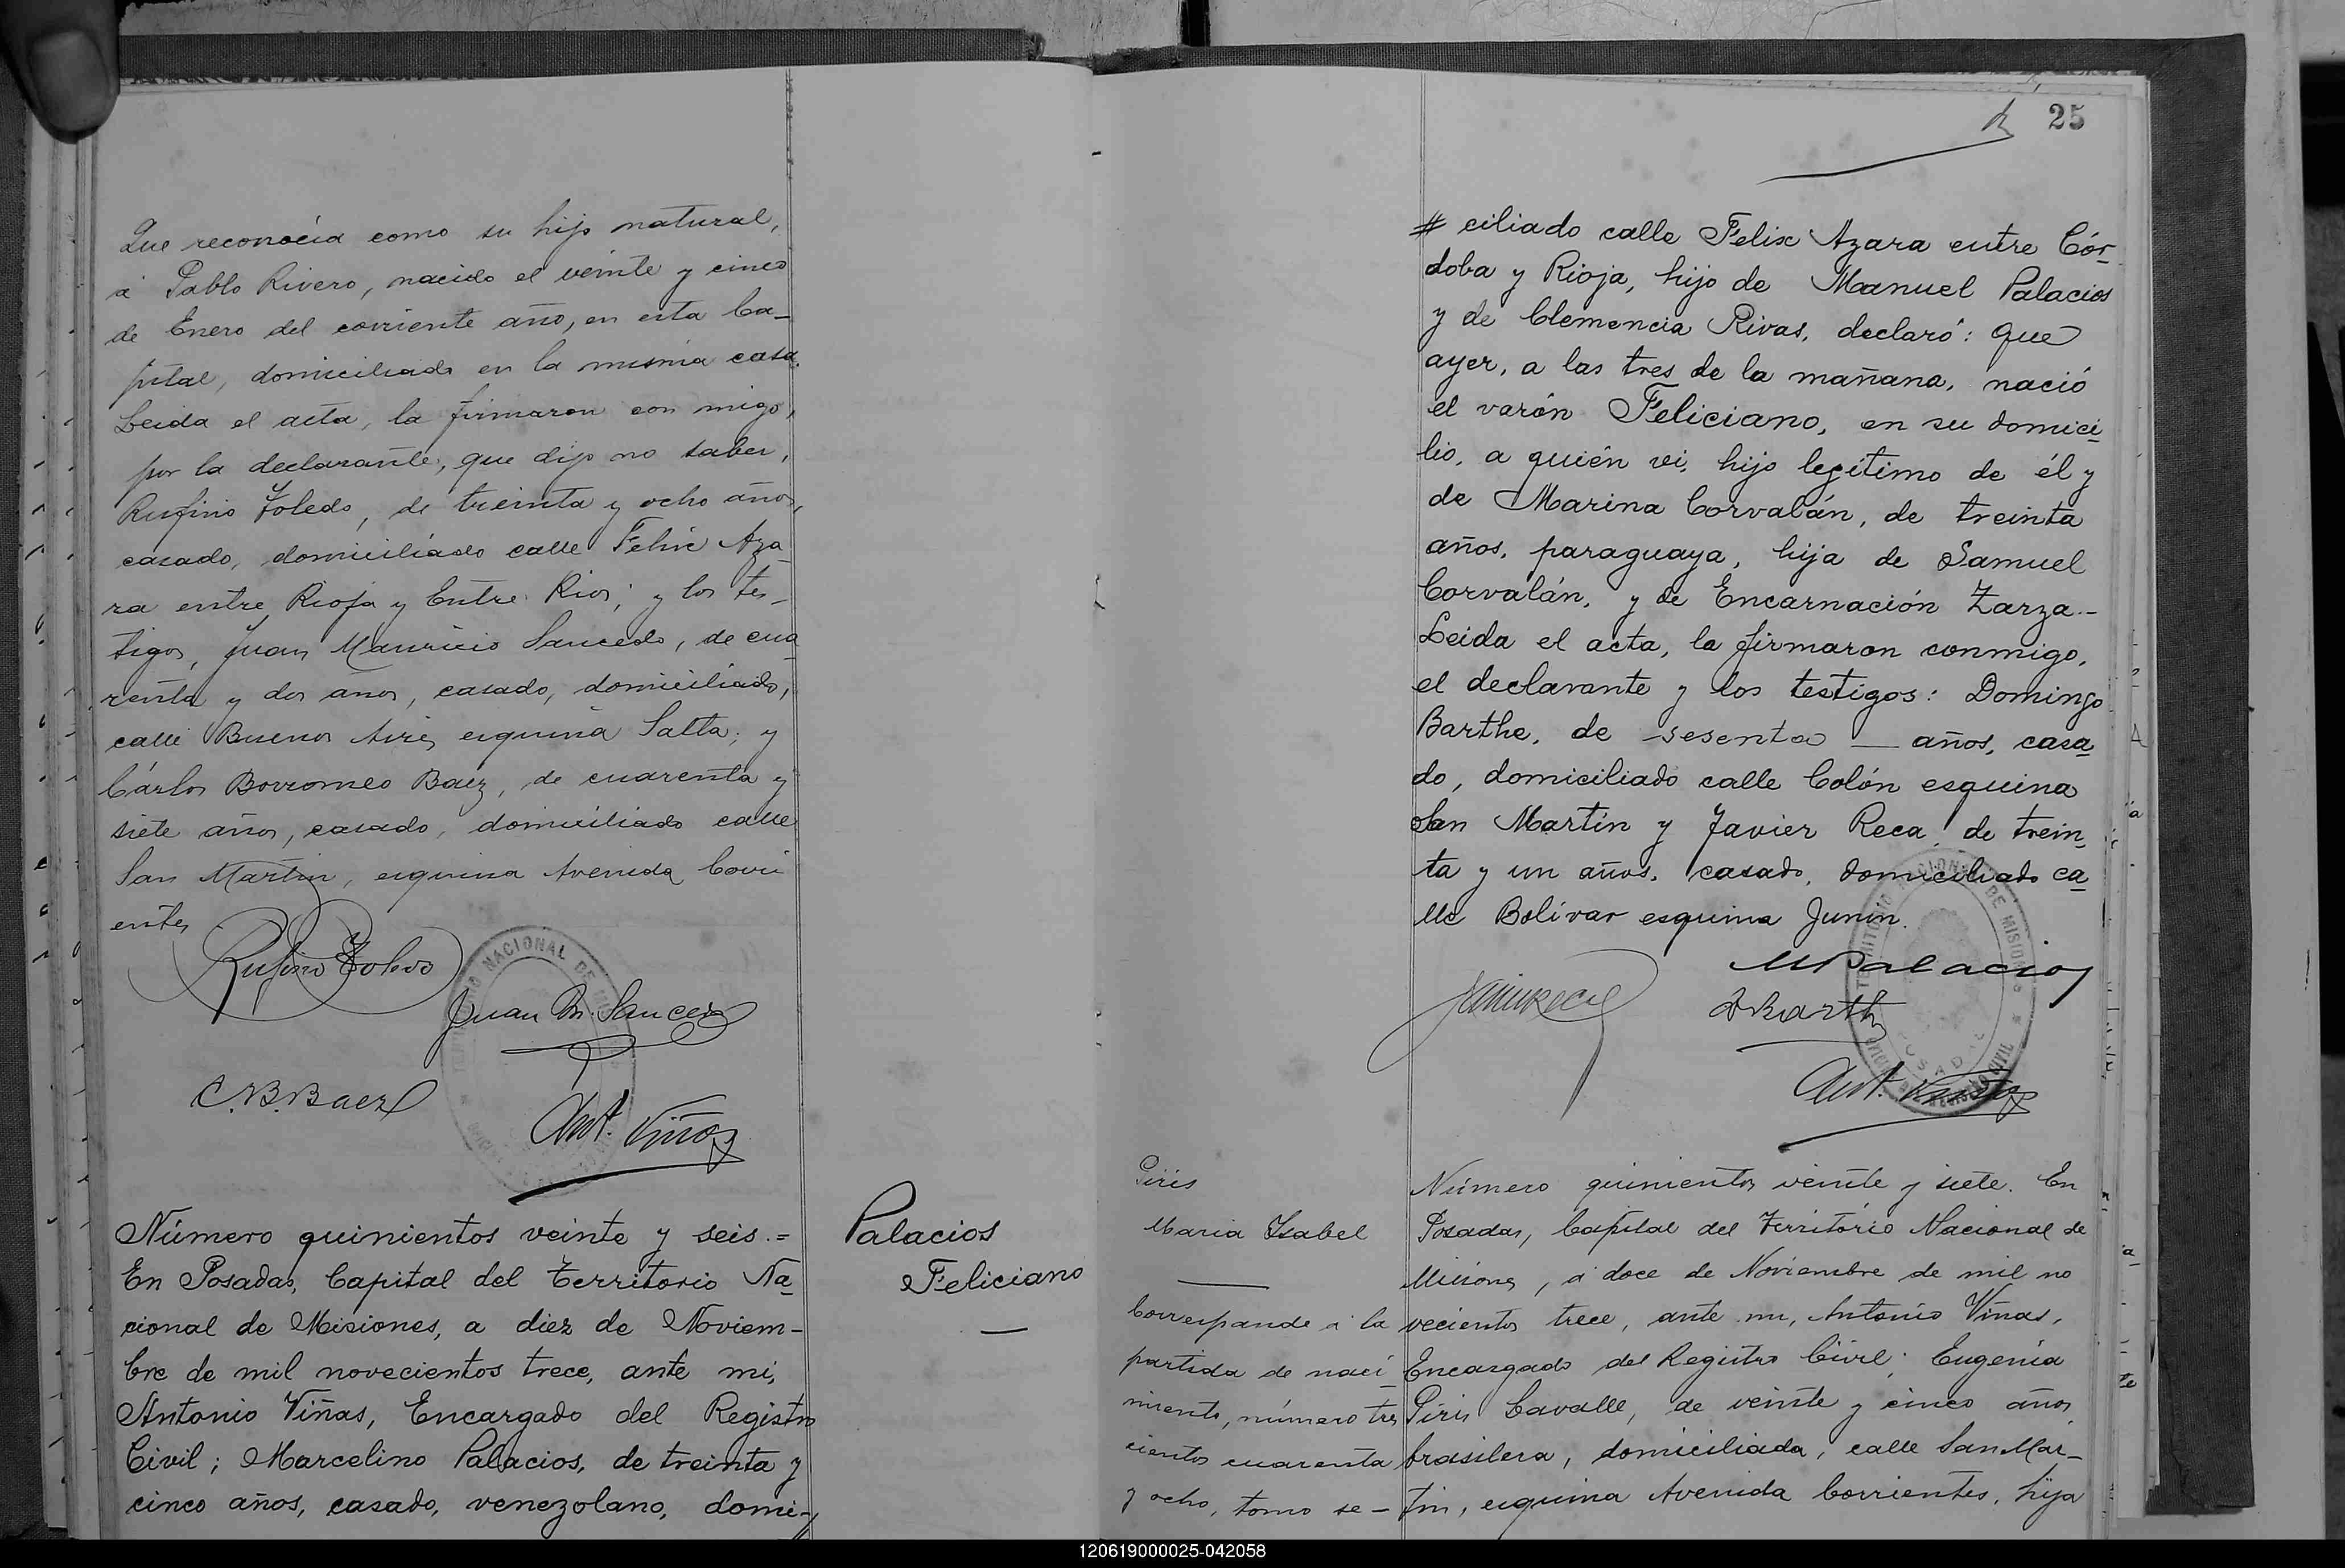 Que reconocía como su hijo natural,
á Pablo Rivero, nacido el veinte y cinco
de Enero del corriente año, en esta Ca-
pital, domiciliado en la misma casa.
Leida el acta, la firmaron con migo,
por la declarante, que dijo no saber,
Rufino Toledo, de treinta y ocho años,
casado, domiciliado calle Felix Aza-
ra entre Rioja y Entre Rios; y los tes-
tigos, Juan Mauricio Saucedo, de cua-
renta y dos años, casado, domiciliado,
calle Buenos Aires esquina Salta; y
Cárlos Borromeo Baez, de cuarenta y
siete años, casado, domiciliado calle
San Martin, esquina Avenida Corri
entes
Rufino Toledo
Juan M. Saucedo
C.B. Baez
Ant. Viñas
Número quinientos veinte y seis.=
En Posadas, Capital del Territorio Na-
cional de Misiones, a diez de Noviem-
bre de mil novecientos trece, ante mi,
Antonio Viñas, Encargado del Registro
Civil; Marcelino Palacios, de treinta y
cinco años, casado, venezolano, domi-
Palacios
Feliciano
25
# ciliado calle Felix Azara entre Cór-
doba y Rioja, hijo de Manuel Palacios
y de Clemencia Rivas, declaró: Que
ayer, a las tres de la mañana, nació
el varón Feliciano, en su domici-
lio, a quién vi, hijo legítimo de él y
de Marina Corvalán, de treinta
años, paraguaya, hija de Samuel
Corvalán, y de Encarnación Zarza.-
Leida el acta, la firmaron conmigo,
el declarante y los testigos: Domingo
Barthe, de sesenta — años, casa-
do, domiciliado calle Colón esquina
San Martín y Javier Reca, de trein-
ta y un años, casado, domiciliado ca-
lle Bolívar esquina Junin.
M Palacios
D Barthe
Ant. Viñas
TERRITORIO NACIONAL DE MISIONES
POSADAS
Piris
Maria Isabel
Corresponde á la
partida de naci-
miento, número tres
cientos cuarenta
y ocho, tomo se-
Número quinientos veinte y siete. En
Posadas, Capital del Territorio Nacional de
Misiones, á doce de Noviembre de mil no
vecientos trece, ante mi, Antonio Viñas,
Encargado del Registro Civil; Eugenia
Piris Cavalle, de veinte y cinco años,
brasilera, domiciliada, calle San Mar-
tin, esquina Avenida Corrientes, hija
120619000025-042058